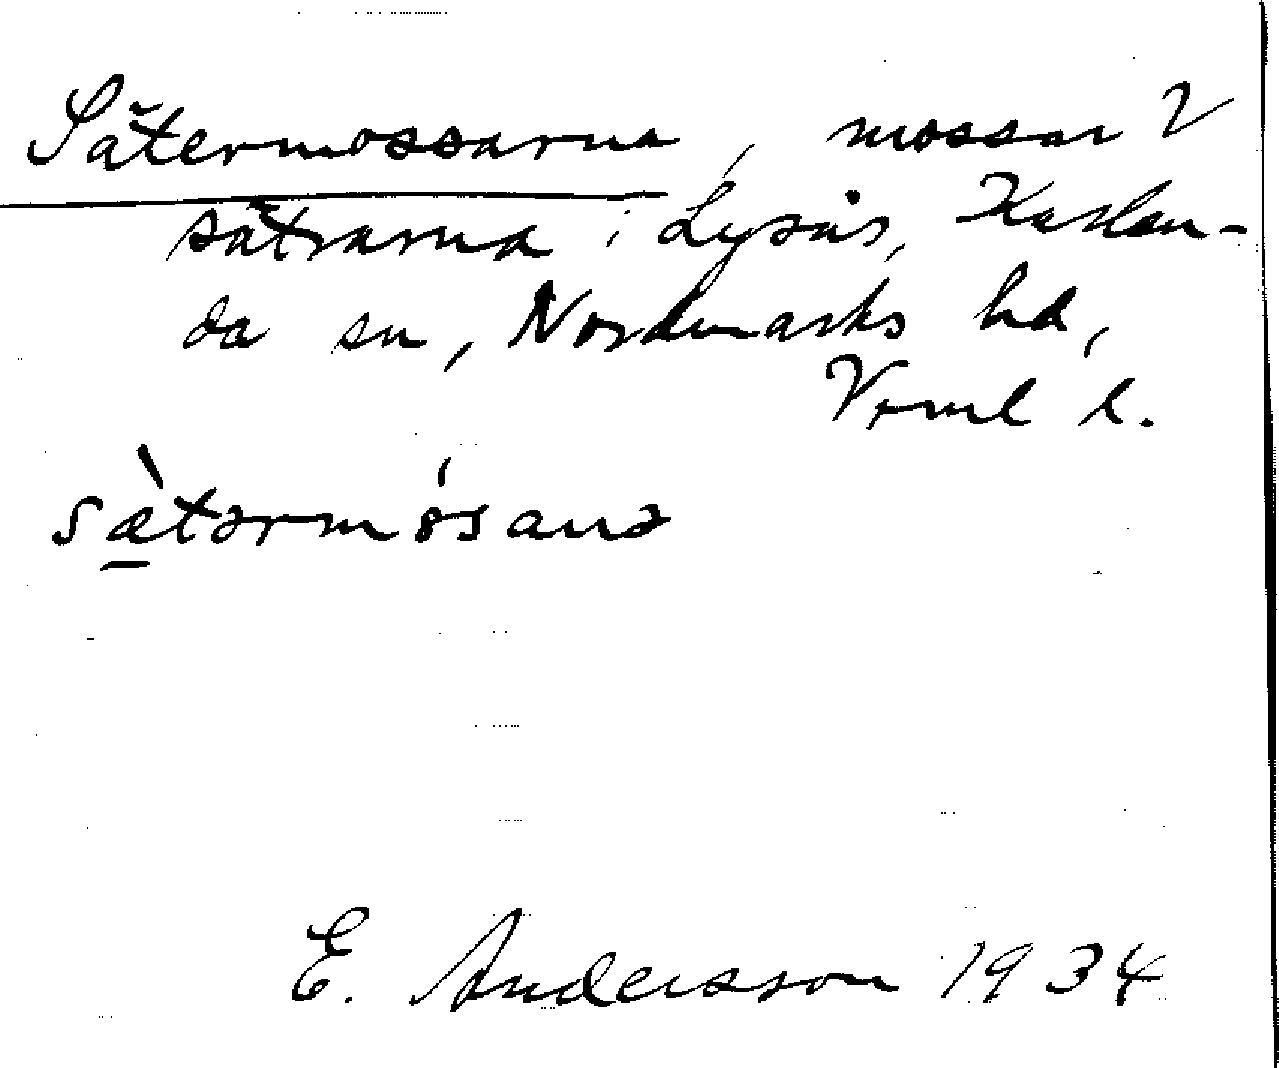 Sätermossarna, mossar V
sätrarna i Lysås, Karlan-
da sn, Nordmarks hd,
Vrml l.
sæ̀tərmósanə
E. Andersson 1934